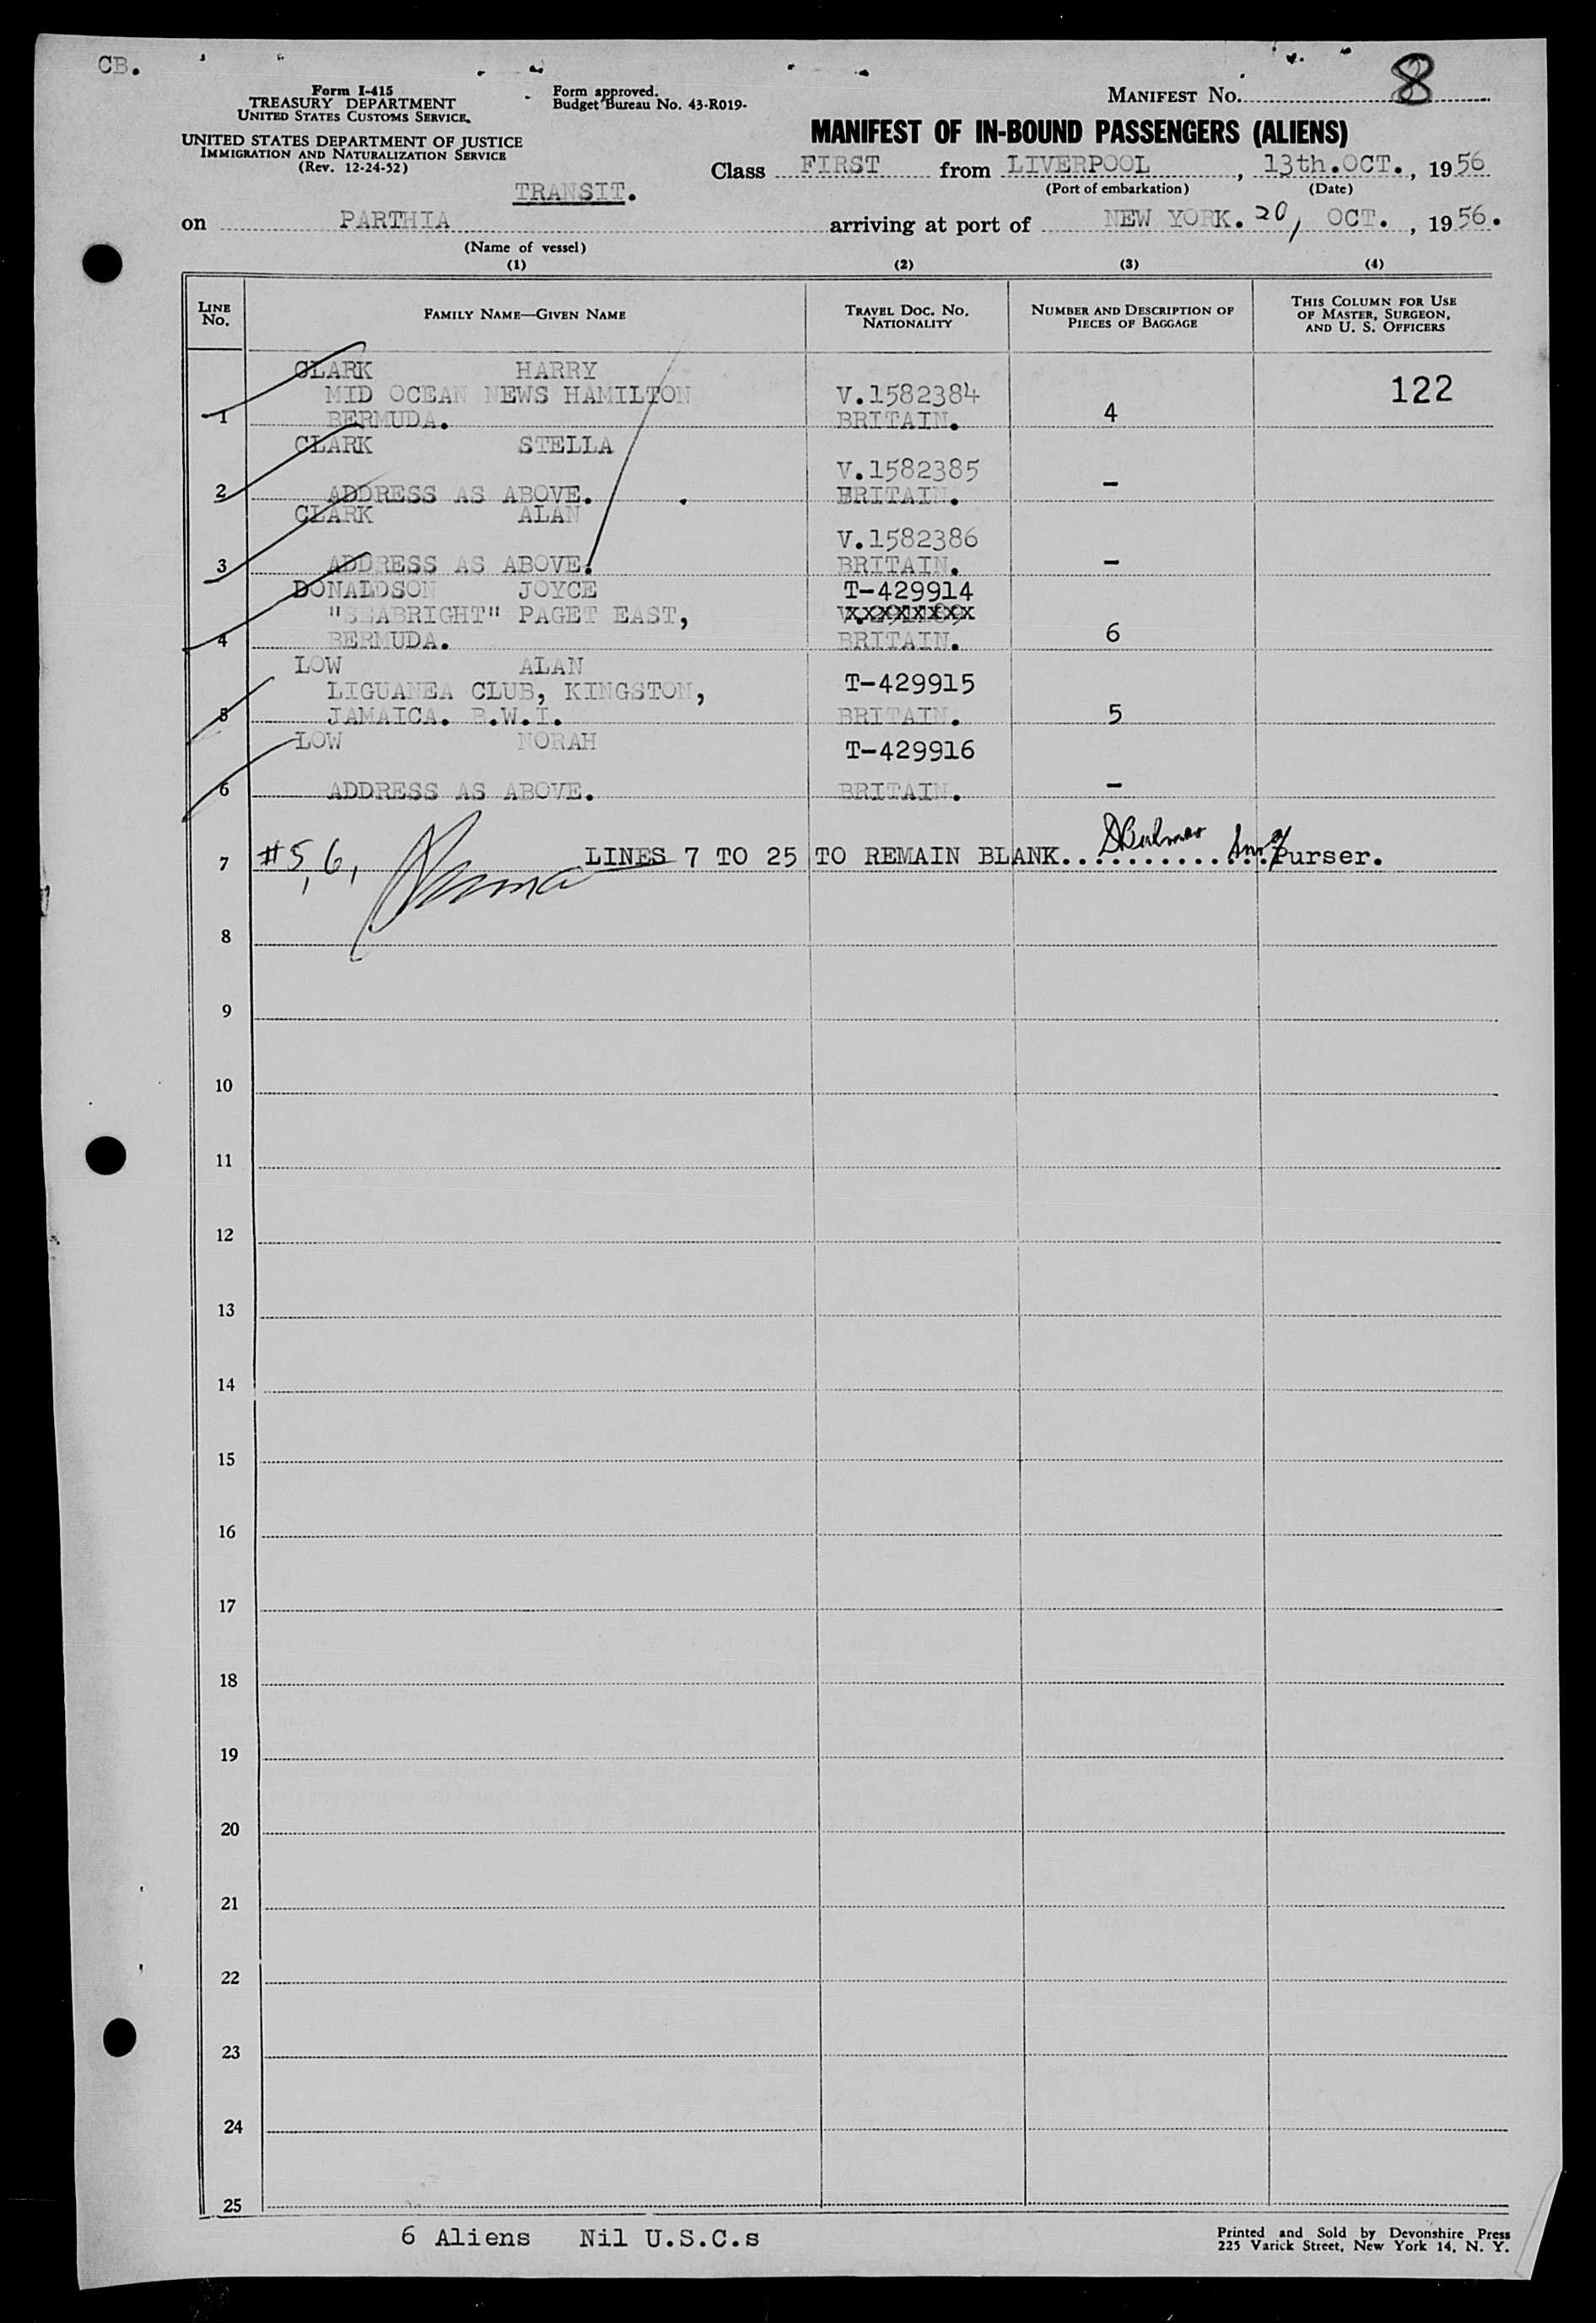 CB.
Form I-415
TREASURY DEPARTMENT
UNITED STATES CUSTOMS SERVICE.
UNITED STATES DEPARTMENT OF JUSTICE
IMMIGRATION AND NATURALIZATION SERVICE
(Rev. 12-24-52)
Form approved.
Budget Bureau No. 43-R019-
MANIFEST NO. 8
MANIFEST OF IN-BOUND PASSENGERS (ALIENS)
Class FIRST from LIVERPOOL, 13th.OCT., 1956
(Port of embarkation) (Date)
TRANSIT.
on PARTHIA arriving at port of NEW YORK. 20, OCT., 1956.
(Name of vessel)
(1) (2) (3) (4)
LINE No. FAMILY NAME—GIVEN NAME TRAVEL DOC. NO. NATIONALITY NUMBER AND DESCRIPTION OF PIECES OF BAGGAGE THIS COLUMN FOR USE OF MASTER, SURGEON, AND U. S. OFFICERS
CLARK HARRY
MID OCEAN NEWS HAMILTON V.1582384 122
1 BERMUDA. BRITAIN. 4
CLARK STELLA
V.1582385
2 ADDRESS AS ABOVE. BRITAIN. -
CLARK ALAN
V.1582386
3 ADDRESS AS ABOVE. BRITAIN. -
DONALDSON JOYCE T-429914
"SEABRIGHT" PAGET EAST,
4 BERMUDA. BRITAIN. 6
LOW ALAN
LIGUANEA CLUB, KINGSTON, T-429915
5 JAMAICA. B.W.I. BRITAIN. 5
LOW NORAH T-429916
6 ADDRESS AS ABOVE. BRITAIN. -
7 #5,6, LINES 7 TO 25 TO REMAIN BLANK. Purser.
8
9
10
11
12
13
14
15
16
17
18
19
20
21
22
23
24
25
6 Aliens Nil U.S.C.s
Printed and Sold by Devonshire Press
225 Varick Street, New York 14, N. Y.